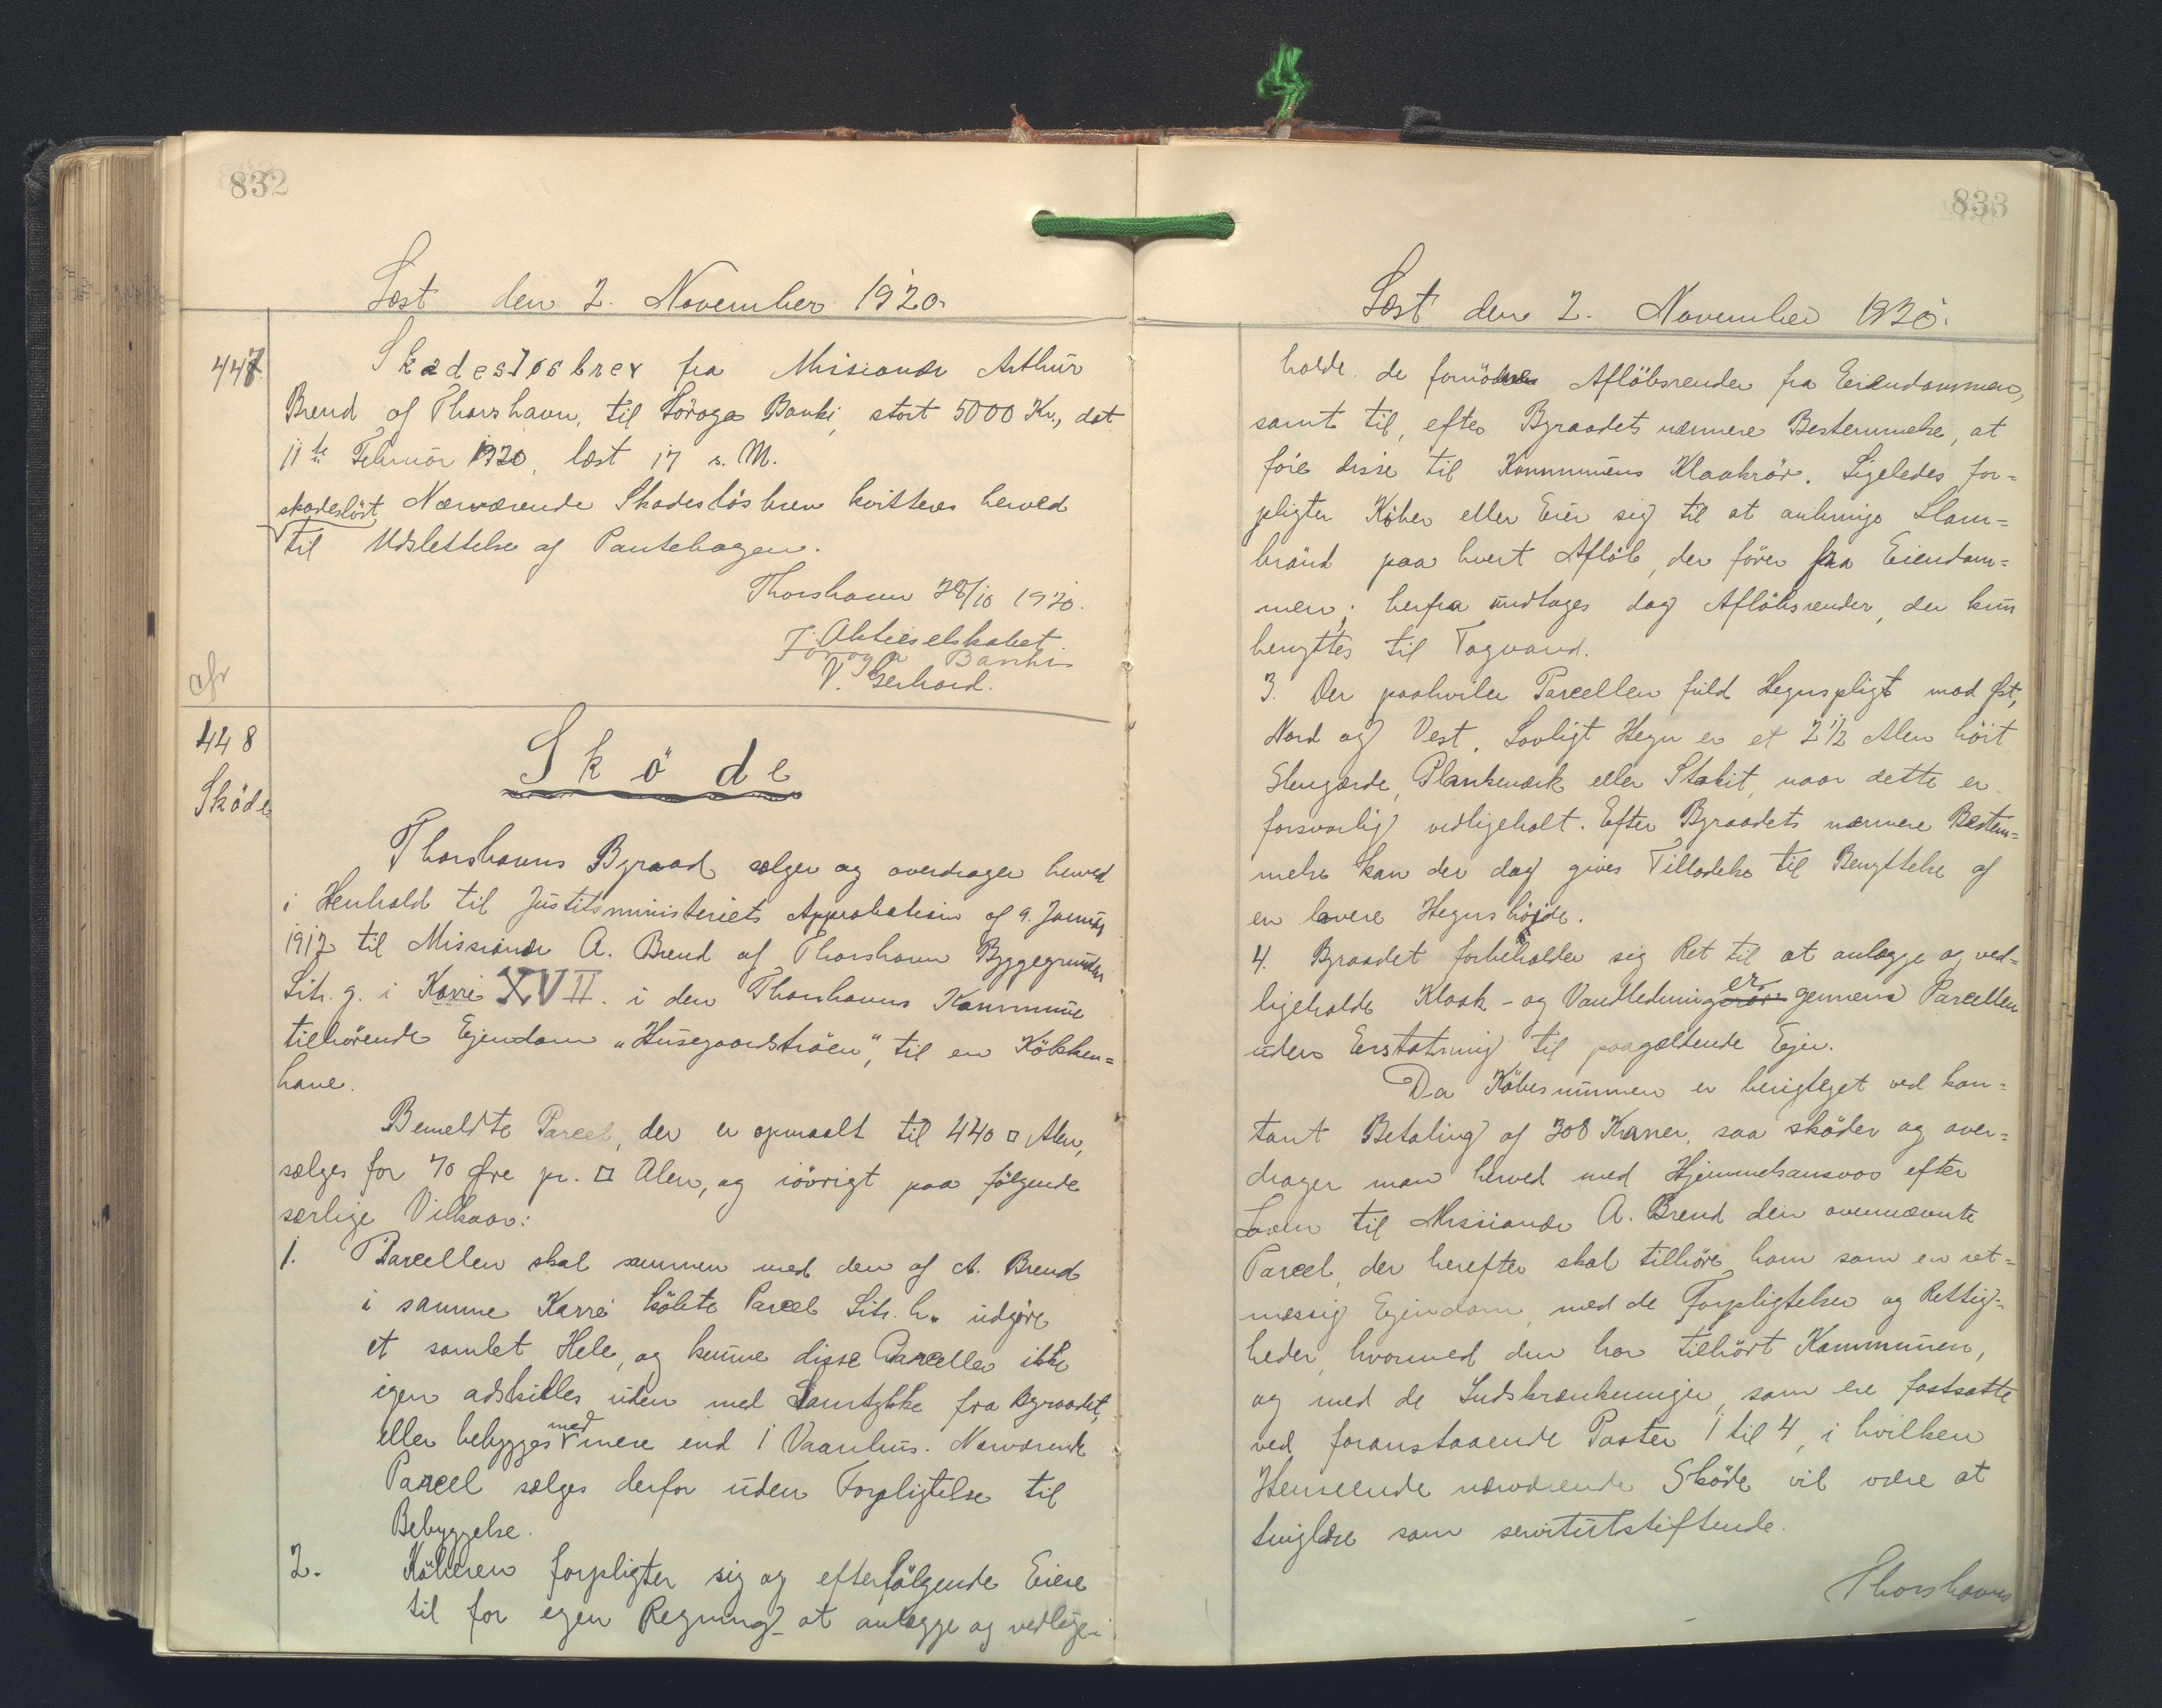 832
Læst den 2. November 1920.
447.
Skadesløsbrev fra Missionær Arthur
Brend af Thorshavn, til Föroya Banki, stort 5000 Kr., dat.
11te Februar 1920, læst 17 s. M.
skadesløst Nærværende Skadesløsbrev kvitteres herved
til Udslettelse af Pantebogen.
Thorshavn 28/10 1920.
Aktieselskabet
Föroya Banki
V. Gerhard.
afr
448
Sköde
Sköde
Thorshavns Byraad sælger og overdrager herved
i Henhold til Justitsministeriets Approbation af 9. Januar
1917 til Missionær A. Brend af Thorshavn Byggegrunden
Litr. g. i Karré XVII. i den Thorshavns Kommune
tilhörende Ejendom "Husegaardströen", til en Kökken=
have.
Bemeldte Parcel, der er opmaalt til 440 □ Alen,
sælges for 70 Øre pr. □ Alen, og iövrigt paa fölgende
særlige Vilkaar:
1. Parcellen skal sammen med den af A. Brend
i samme Karré köbte Parcel Litr. h. udgöre
et samlet Hele, og kunne disse Parceller ikke
igen adskilles uden med Samtykke fra Byraadet,
eller bebygges med mere end 1 Vaanhus. Nærværende
Parcel sælges derfor uden Forpligtelse til
Bebyggelse.
2. Köberen forpligter sig og efterfölgende Eiere
til for egen Regning at anlægge og vedlige-
833
Læst den 2. November 1920.
holde de fornödne Aflöbsrender fra Eiendommen,
samt til, efter Byraadets nærmere Bestemmelse, at
före disse til Kommunens Kloakrör. Ligeledes for=
pligter Köber eller Eier sig til at anbringe Slam=
brönd paa hvert Aflöb, der förer fra Eiendom=
men; herfra undtages dog Aflöbsrender, der kun
benyttes til Tagvand.
3. Der paahviler Parcellen fuld Hegnspligt mod Øst,
Nord og Vest. Lovligt Hegn er et 2 1/2 Alen höit
Stengærde, Plankeværk eller Stakit, naar dette er
forsvarlig vedligeholt. Efter Byraadets nærmere Bestem=
melse kan der dog gives Tilladelse til Benyttelse af
en lavere Hegnshöjde.
4. Byraadet forbeholder sig Ret til at anlægge og ved=
ligeholde Kloak- og Vandledninger gennem Parcellen
uden Erstatning til paagældende Ejer.
Da Köbesummen er berigtiget ved kon=
tant Betaling af 308 Kroner, saa sköder og over=
drager man herved med Hjemmelsansvar efter
Loven til Missionær A. Brend den ovennævnte
Parcel, der herefter skal tilhöre ham som en ret=
mæssig Ejendom, med de Forpligtelser og Rettig=
heder, hvormed den har tilhört Kommunen,
og med de Indskrænkninger, som ere fastsatte
ved foranstaaende Poster 1 til 4, i hvilken
Henseende nærværende Sköde vil være at
tinglæse som servitutstiftende.
Thorshavns